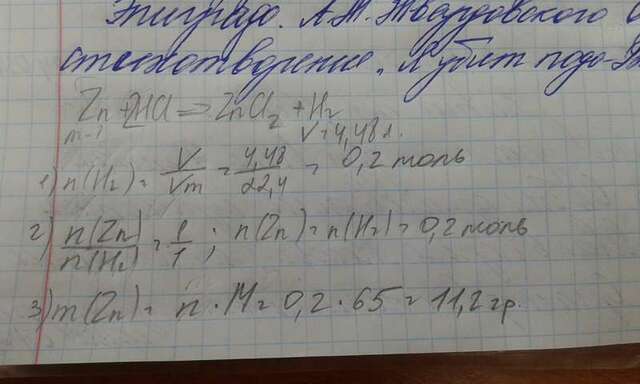 Эпиграф. А.Т. Твардовского
стихотворение "Я убит подо Рж
Zn + 2HCl = ZnCl₂ + H₂
m-? V=4,48 л.
1) n(H₂) = V/Vm = 4,48/22,4 = 0,2 моль
2) n(Zn)/n(H₂) = 1/1 ; n(Zn) = n(H₂) = 0,2 моль
3) m(Zn) = n · M = 0,2 · 65 = 11,2 гр.